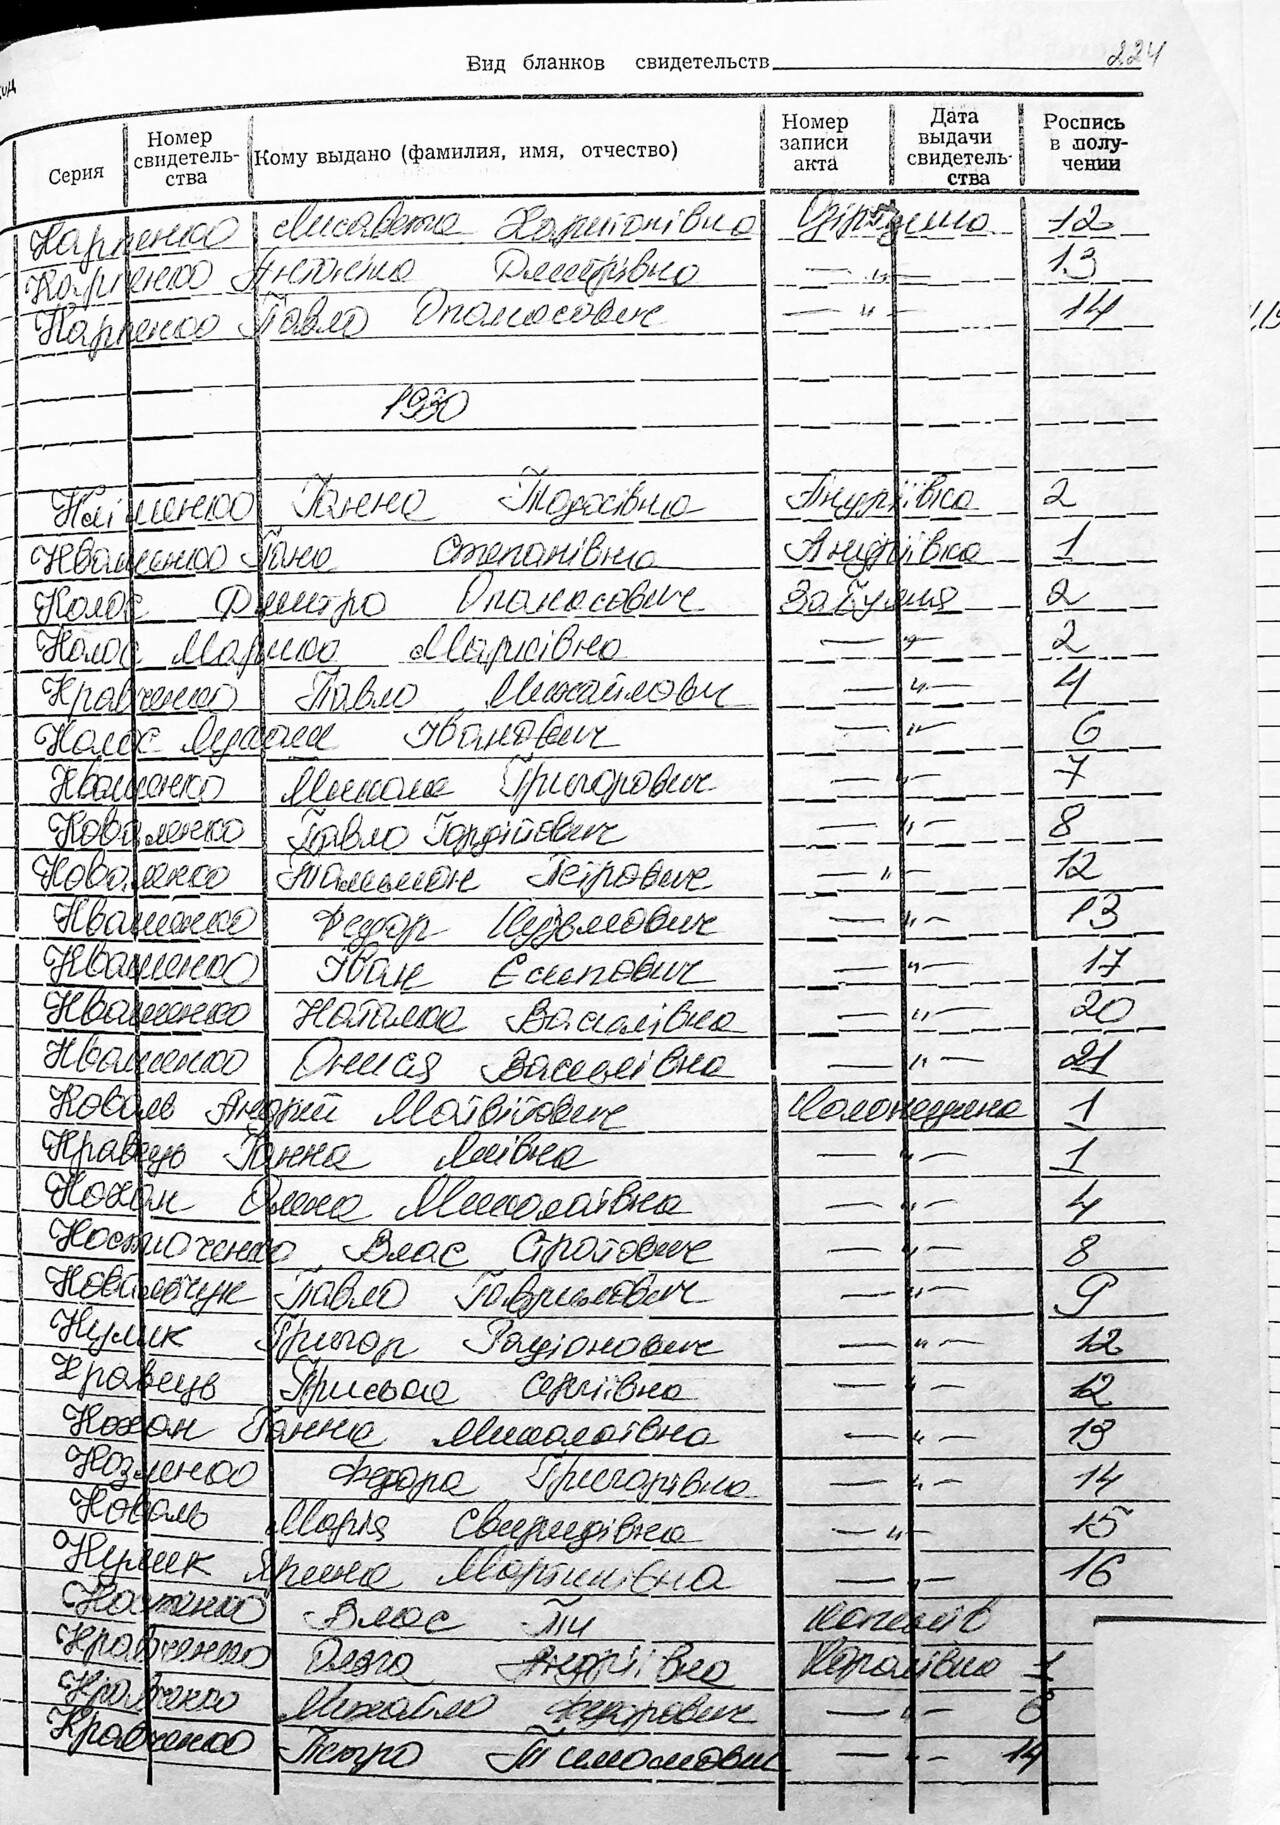 Вид бланков свидетельств 224
Серия Номер свидетель-ства Кому выдано (фамилия, имя, отчество) Номер записи акта Дата выдачи свидетель-ства Роспись в полу-чении
Карпенко Лисавета Харитонівна 12
Карпенко Антоніна Дмитрівна — " — 13
Карпенко Павло Опанасович — " — 14
1930
Кліменко Ганна Тарасівна Андріївка 2
Квашенко Гана Степанівна Андріївка 1
Колос Дмитро Опанасович Забуяня 2
Колос Марика Марківна — " — 2
Кравченко Павло Михайлович — " — 4
Колос Іванович — " — 6
Квашенко Микола Григорович — " — 7
Коваленко Павло Гордійович — " — 8
Коваленко Петрович — " — 12
Квашенко Федор Кузьмович — " — 13
Квашенко Іван Єсипович — " — 17
Квашенко Наталка Василівна — " — 20
Квашенко Онися Василівна — " — 21
Коваль Андрій Матвійович 1
Кравець Ганна — " — 1
Кохан Олена Миколаївна — " — 4
Костюченко Влас — " — 8
Ковальчук Павло Гаврилович — " — 9
Кулик Григор Радіонович — " — 12
Кравець Приська Сергіївна — " — 12
Кохан Ганна Миколаївна — " — 13
Козленко Федора Григорівна — " — 14
Коваль Марія Свиридівна — " — 15
Кулик Ярина Мартинівна — " — 16
Костенко Влас Копилів
Кравченко Ольга Андріївна Королівка 1
Кравченко Михайло Федорович — " — 6
Кравченко Петро — " — 14